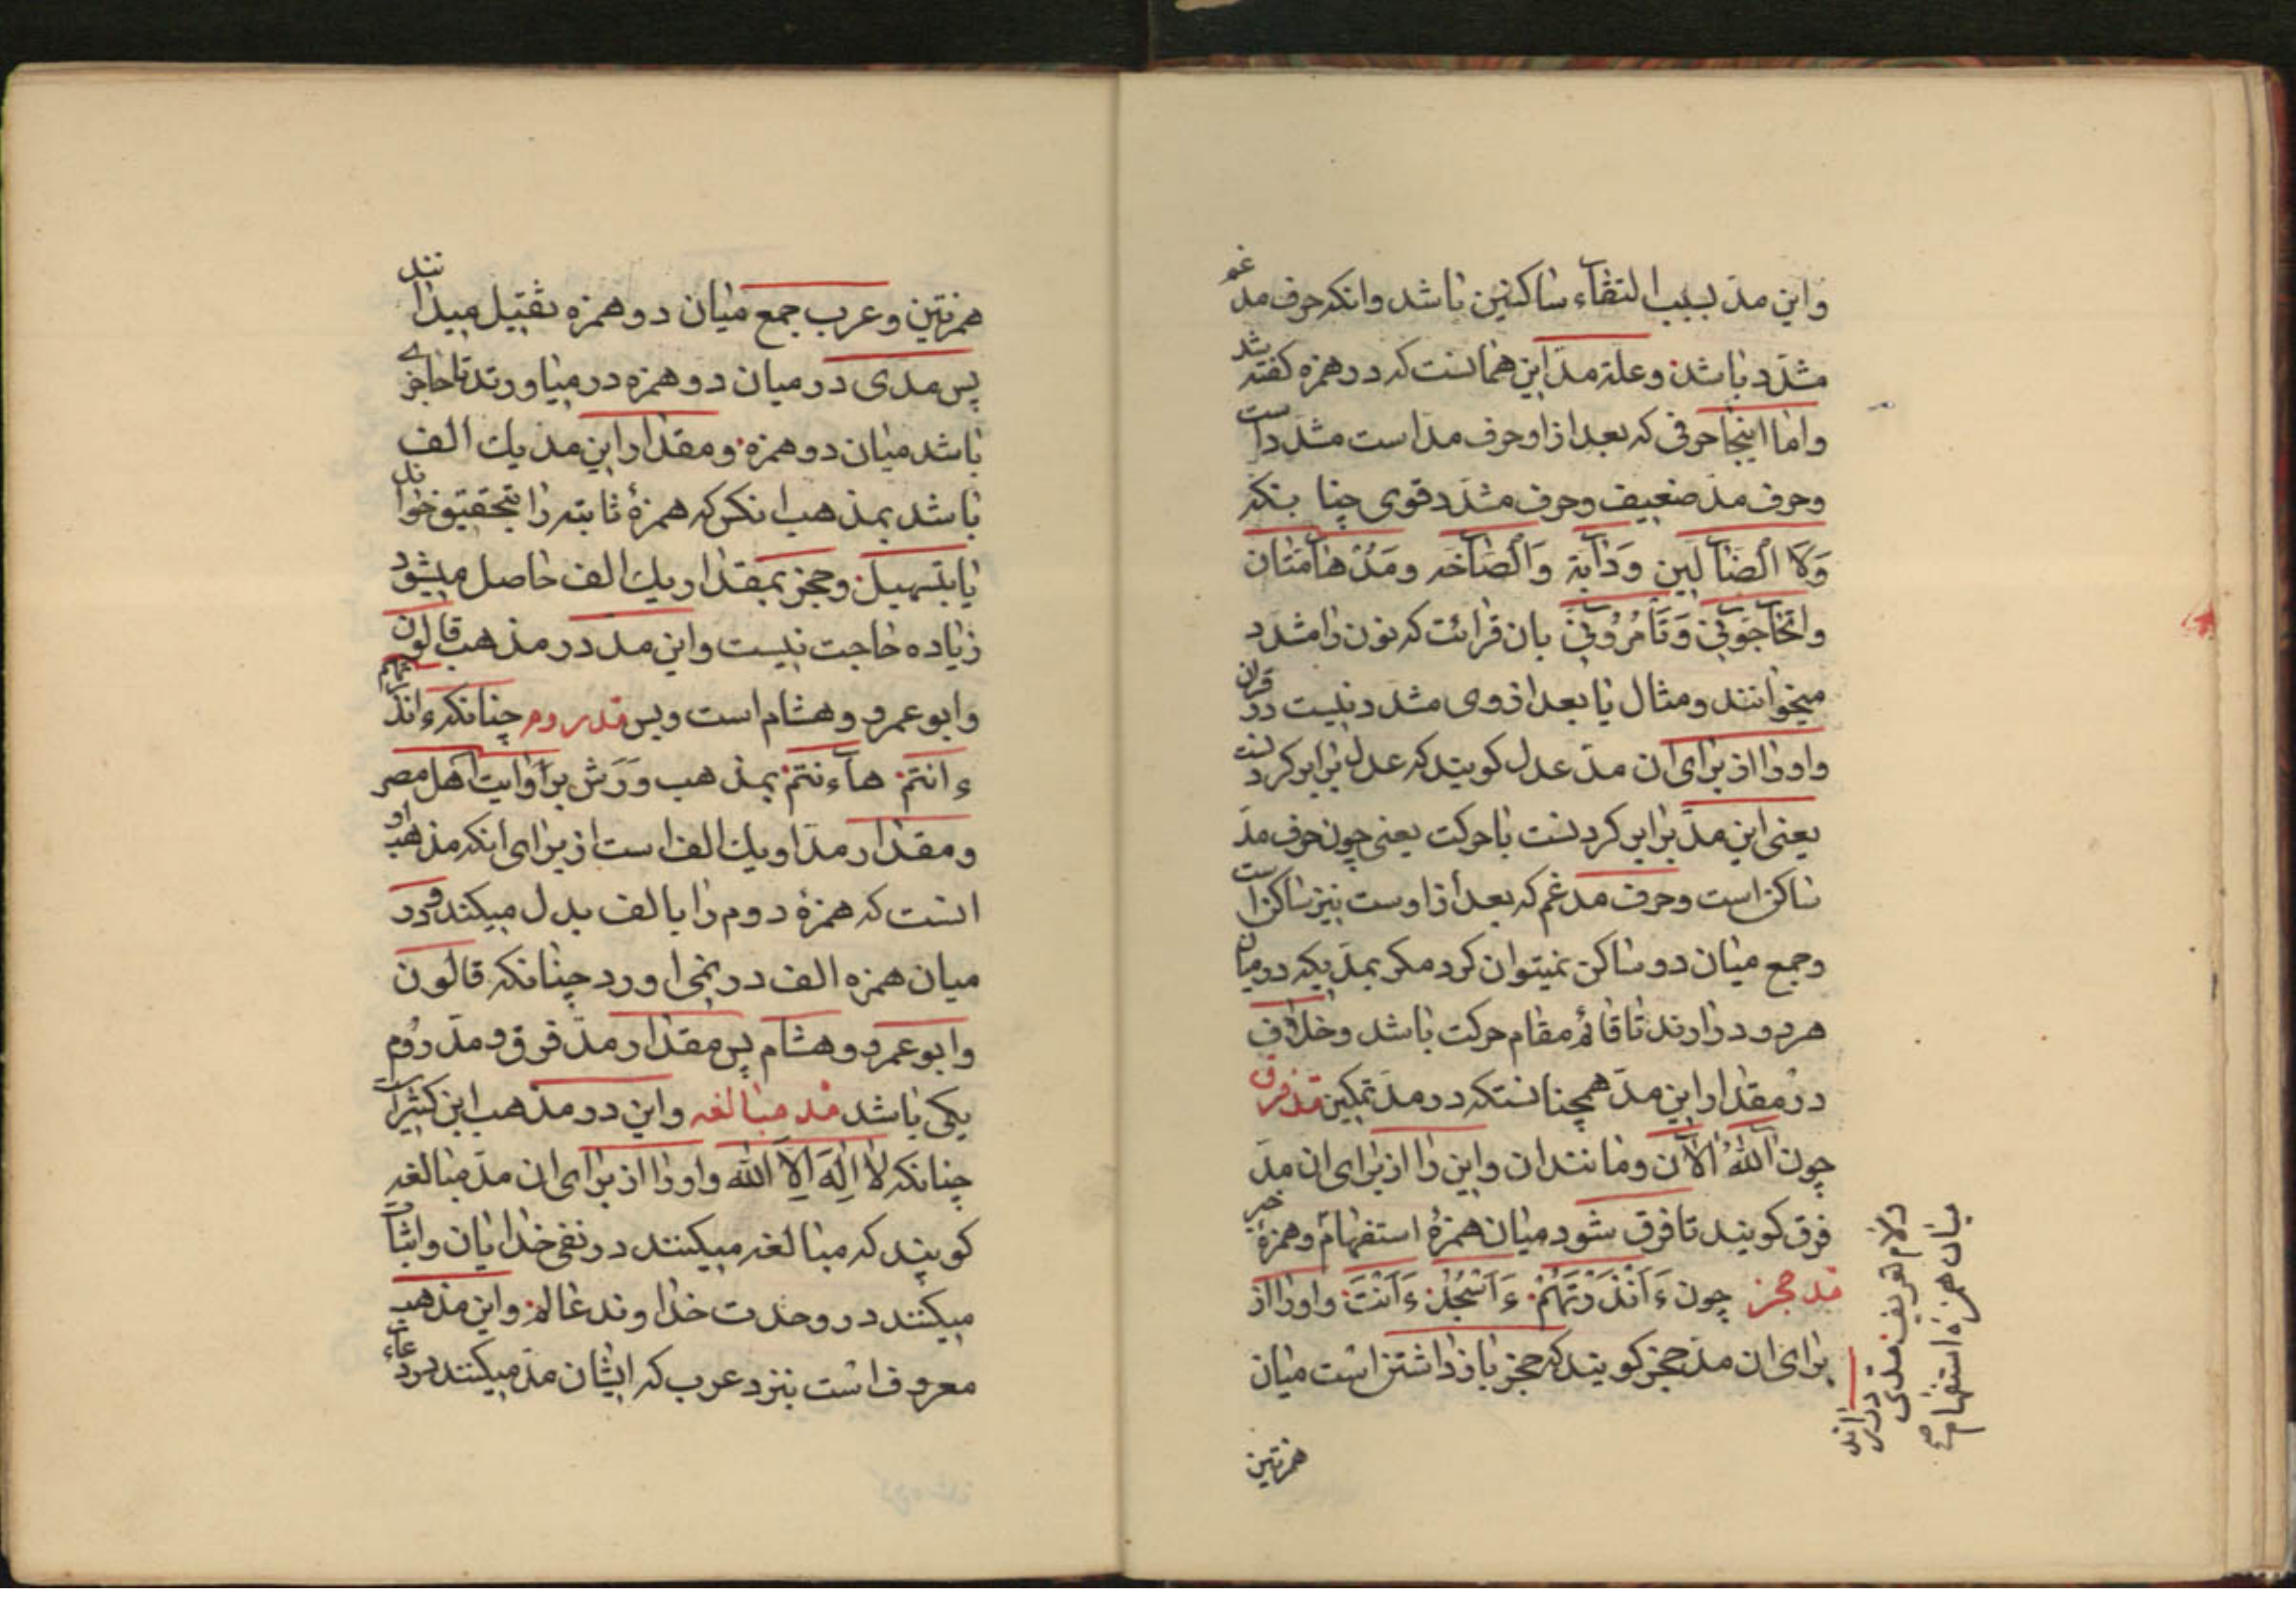 واین مدّ بسبب التقاء ساکنین باشد وانکه حرف مد غم
مشدّد باشد وعلة مدّ این همانست که در همزه کفته شد
واما اینجا حرفی که بعد از او حرف مد است مشدّد است
وحرف مدّ ضعیف وحرف مشدّد قوی چنا بنکه
وَلَا الضَّآلّین وَدَآبّة وَالصَّآخّه ومُدْهَآمّتان
واتُحَآجّوٓنّی وَتَأمُرُوٓنّی بان قرائت که نون را مشدد
میخوانند ومثال یا بعد از وی مشدد نیست در قران
واو را از برای ان مدّ عدل کویند که عدل برابر کردنست
یعنی این مدّ برابر کردنست با حرکت یعنی چون حرف مدّ
ساکن است وحرف مدغم که بعد از اوست نیز ساکن است
وجمع میان دو ساکن نمیتوان کرد مکر بمدّیکه در میان
هر دو در ارند تا قائم مقام حرکت باشد وخلاف
در مقدار این مدّ همچنانستکه در مدّ تمکین مد فرق
چون آللّهُ آلآن ومانند ان واین را از برای ان مدّ
فرق کویند تا فرق شود میان همزهٔ استفهام وهمزهٔ خبر
مد حجز چون ءَاَنْذَرْتَهُمْ ءَاَسْجُدُ ءَاَنْتَ واو را از
برای ان مدّ حجز کویند که حجز باز داشتن است میان
همزتین
میان همزه استفهام
ولام تعریف مدی
در ارند
همزتین وعرب جمع میان دو همزه ثقیل میدانند
پس مدی در میان دو همزه در میاورند تا حاجزی
باشد میان دو همزه ومقدار این مد یك الف
باشد بمذهب انکس که همزهٔ ثابته را بتحقیق خوانند
یا بتسهیل وحجز بمقدار یك الف حاصل میشود
زیاده حاجت نیست واین مدّ در مذهب قالون
وابو عمرو وهشام است وبس مد روم چنانکه ءانذرتهم
ءانتم هآءنتم بمذهب وَرَش بروایت اهل مصر
ومقدار مدّ او یك الف است از برای انکه مذهب او
انست که همزهٔ دوم را بالف بدل میکند ودر
میان همزه الف در نمی اورد چنانکه قالون
وابو عمرو وهشام پس مقدار مدّ فرق ومدّ رُوم
یکی باشد مد مبالغه واین در مذهب ابن کثیر است
چنانکه لآ اِلٰهَ اِلّا اللّه واو را از برای ان مدّ مبالغه
کویند که مبالغه میکنند در نفی خدایان واثبات
میکنند در وحدت خداوند عالم واین مذهب
معروف است بنزد عرب که ایشان مدّ میکنند در دعاء